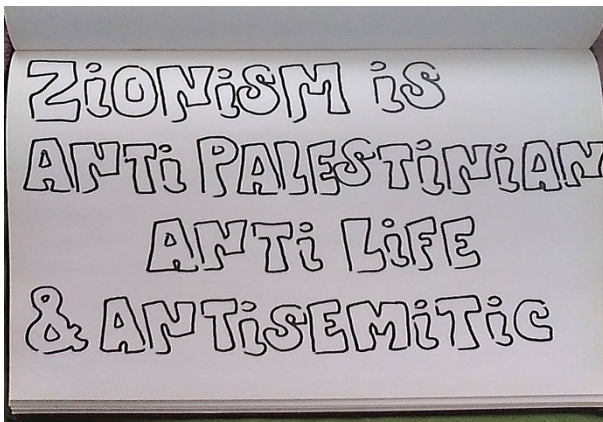 ZiONiSM is
ANTi PALESTiNiAN
ANTi LiFE
& ANTiSEMiTiC